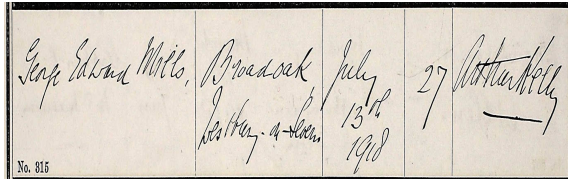 George Edward Mills,
Broadoak,
Westbury-on-Severn
July
13th
1918
27
Arthur Kelly
No. 315